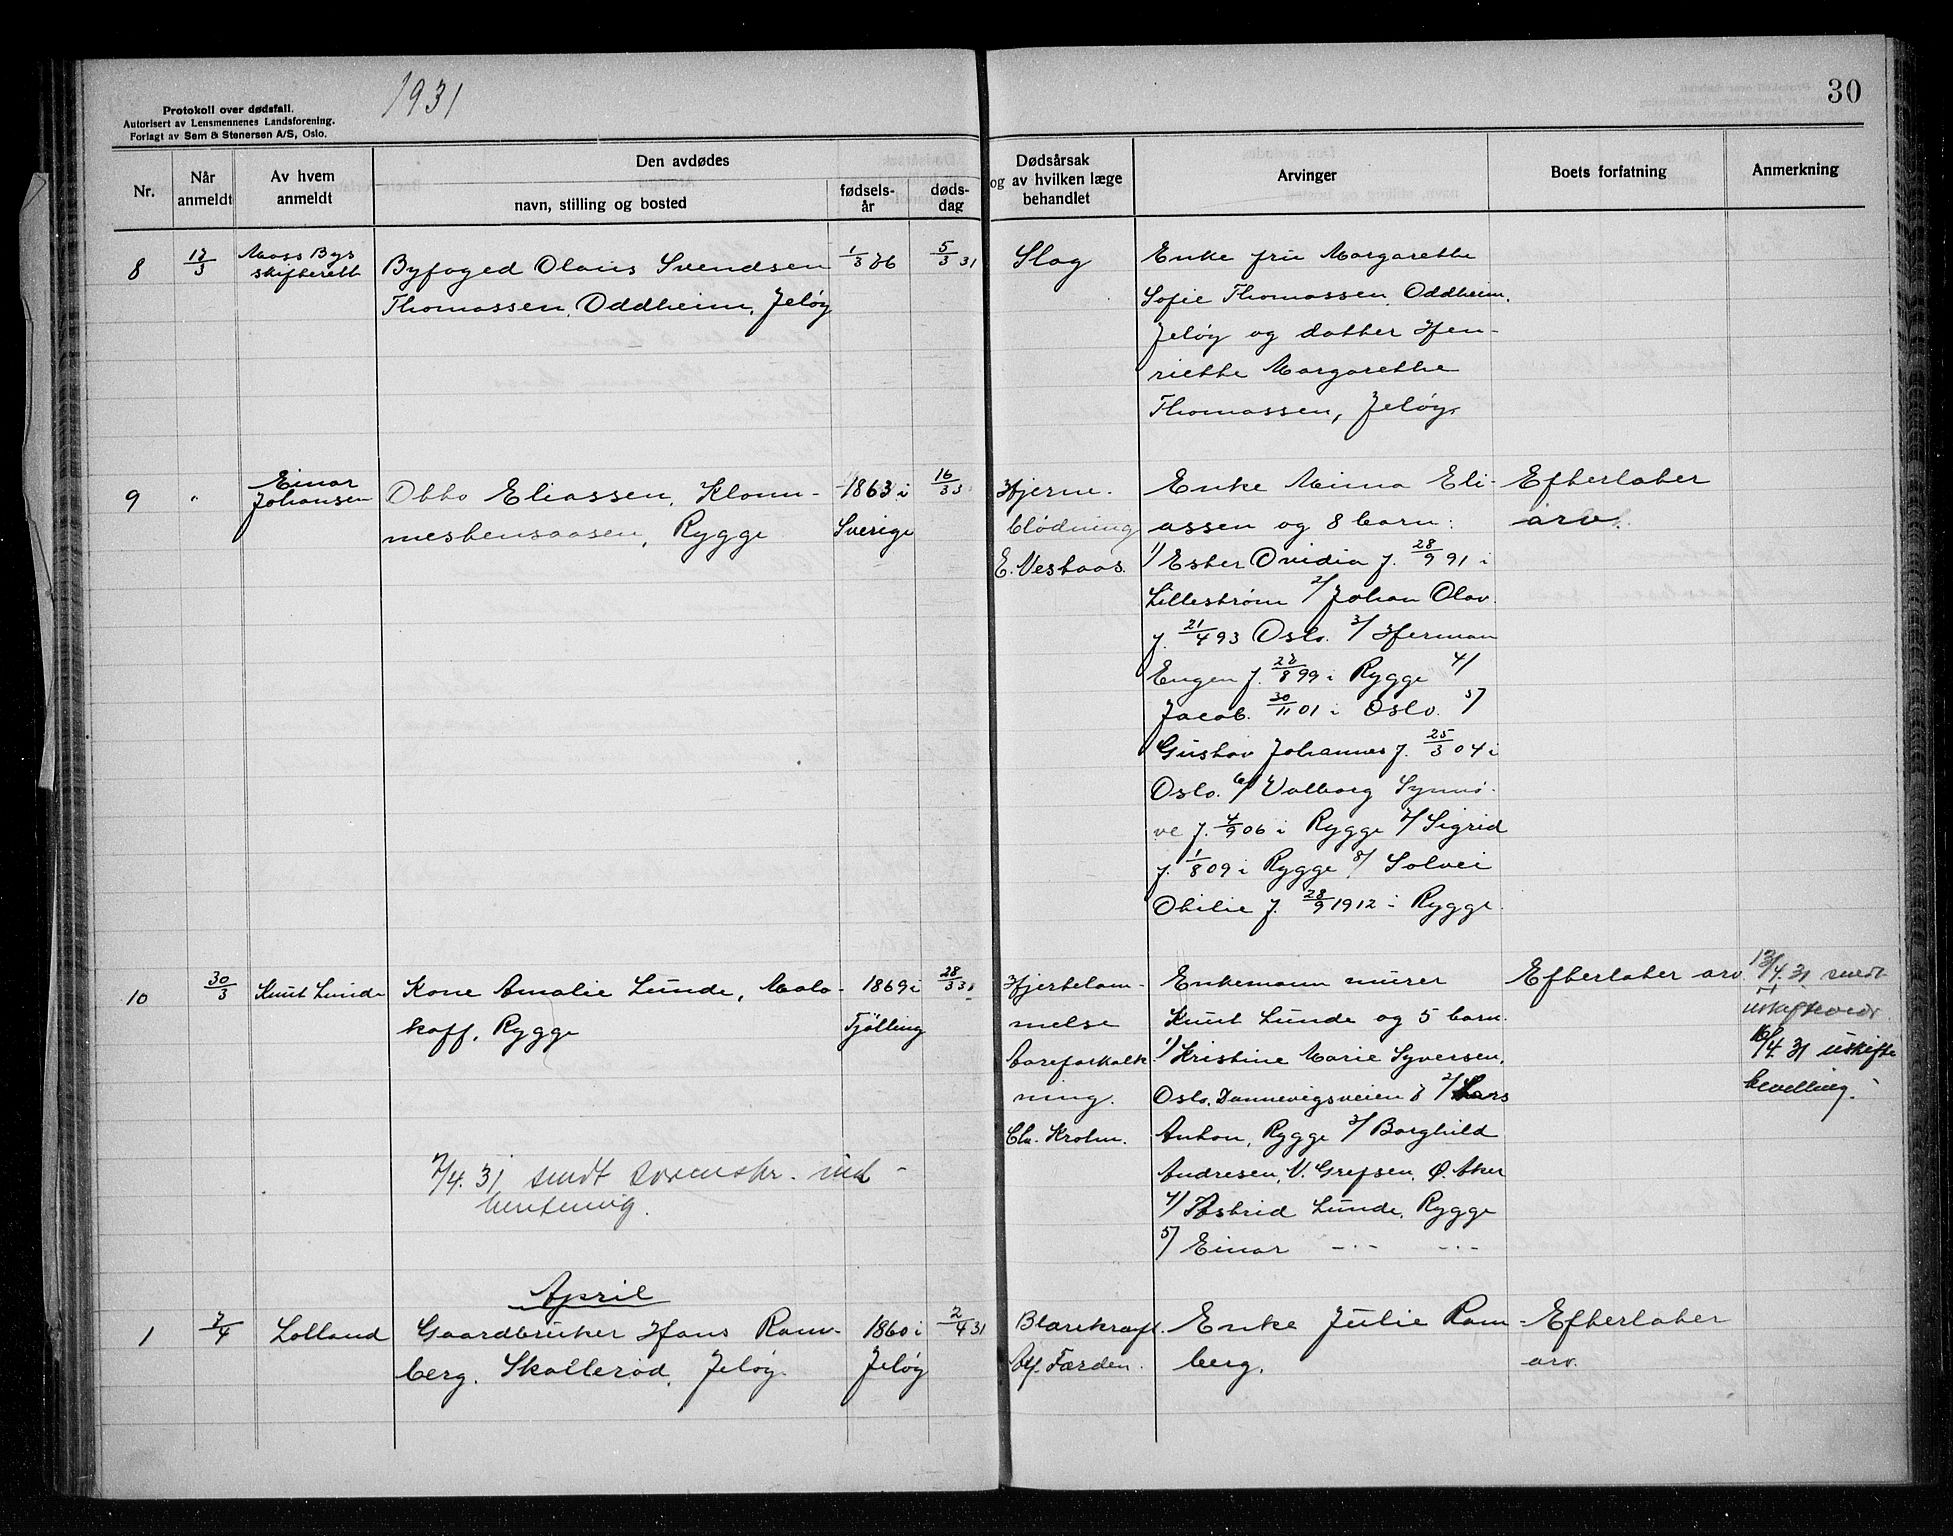 1931
30
Protokoll over dødsfall.
Autorisert av Lensmennenes Landsforening.
Forlagt av Sem & Stenersen A/S, Oslo.
Nr.
Når anmeldt
Av hvem anmeldt
Den avdødes
navn, stilling og bosted
fødsels-år
døds-dag
Dødsårsak og av hvilken læge behandlet
Arvinger
Boets forfatning
Anmerkning
8
17/3
Moss Bys
skifterett
Byfoged Olaus Svendsen
Thomassen, Oddheim, Jeløy
1/3 76
5/3 31
Slag
Enke fru Margarethe
Sofie Thomassen, Oddheim,
Jeløy og datter Hen-
riette Margarethe
Thomassen, Jeløy.
9
"
Einar
Johansen
Otto Eliassen, Klom-
mestensaasen, Rygge
1863 i
Sverige
16/3 31
Hjerne-
blødning
E. Vestaas.
Enke Minna Eli-
assen og 8 barn:
1/ Ester Ovidia f. 28/9 91 i
Lillestrøm 2/ Johan Olav
f. 21/4 93 Oslo. 3/ Herman
Eugen f. 28/8 99 i Rygge 4/
Jacob. 30/11 01 i Oslo. 5/
Gustav Johannes f. 25/3 04 i
Oslo. 6/ Valborg Synnø-
ve f. 4/9 06 i Rygge 7/ Sigrid
f. 1/8 09 i Rygge 8/ Solvei
Otilie f. 28/9 1912 i Rygge.
Efterlater
arv.
10
30/3
Knut Lunde
Kone Amalie Lunde, Mala-
koff, Rygge
1869 i
Tjølling
28/3 31
Hjertelam-
melse
Aareforkalk
ning.
Chr. Krohn.
Enkemann murer
Knut Lunde og 5 barn.
1/ Kristine Marie Syversen,
Oslo, Dannevigsveien 8 2/ Lars
Anton, Rygge 3/ Borghild
Andresen, V. Grefsen, Ø. Aker
4/ Astrid Lunde, Rygge
5/ Einar -"- -"-
Efterlater arv.
13/4. 31 sendt
uskifte
16/4. 31 uskifte
bevilling.
7/4. 31 sendt sorenskr. ind-
April
1
7/4
Lolland
Gaardbruker Hans Ram-
berg, Skallerød, Jeløy.
1860 i
Jeløy
2/4 31
Blærekræft.
Alf. Færden.
Enke Julie Ram-
berg.
Efterlater
arv.